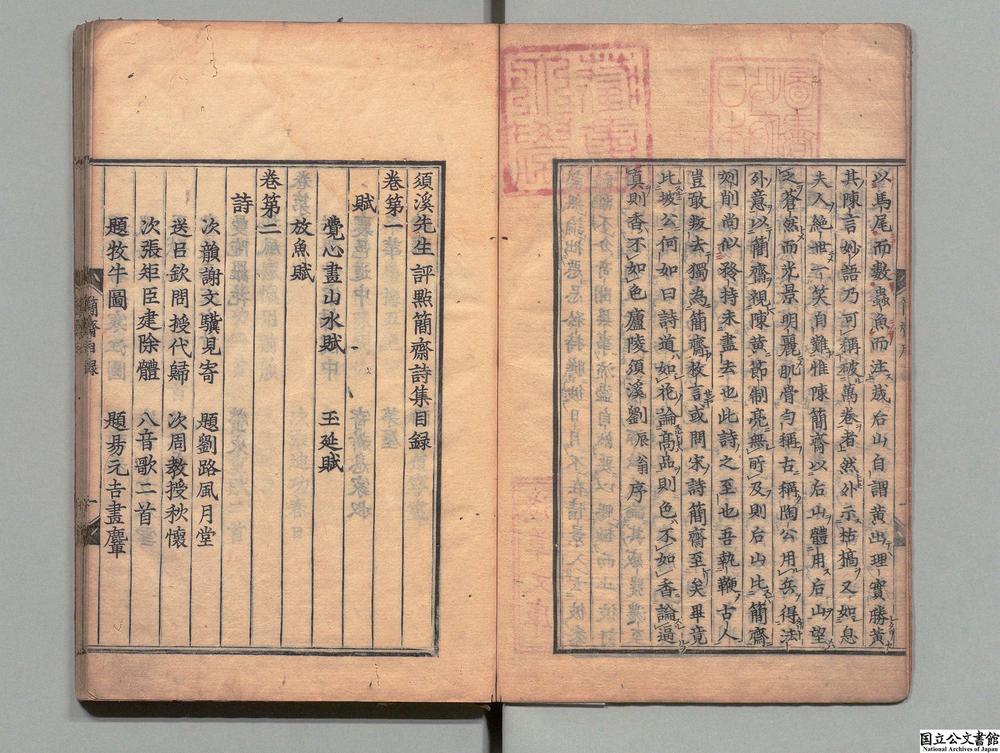 以馬尾而數蟲魚而注歲后山自謂黃出理實勝黃
其陳言妙語乃可稱破萬卷者然外示枯槁又如息
夫人絕世一笑自難惟陳簡齋以后山體用后山望
之蒼然而光景明麗肌骨勻稱古稱陶公用兵得法
外意以簡齋視陳黃節制亮無所及則后山比簡齋
刻削尚似矜持未盡去也此詩之至也吾執鞭古人
豈敢叛去獨為簡齋放言或問宋詩簡齋至矣畢竟
比坡公何如曰詩道如花論高品則色不如香論逼
真則香不如色廬陵須溪劉辰翁序
須溪先生評點簡齋詩集目録
卷第一
賦
覺心畫山水賦 玉延賦
放魚賦
卷第二
詩
次韻謝文驥見寄 題劉路風月堂
送吕欽問授代歸 次周教授秋懷
次張矩臣建除體 八音歌二首
題牧牛圖 題易元吉畫麞
簡齋目録
一
国立公文書館
National Archives of Japan